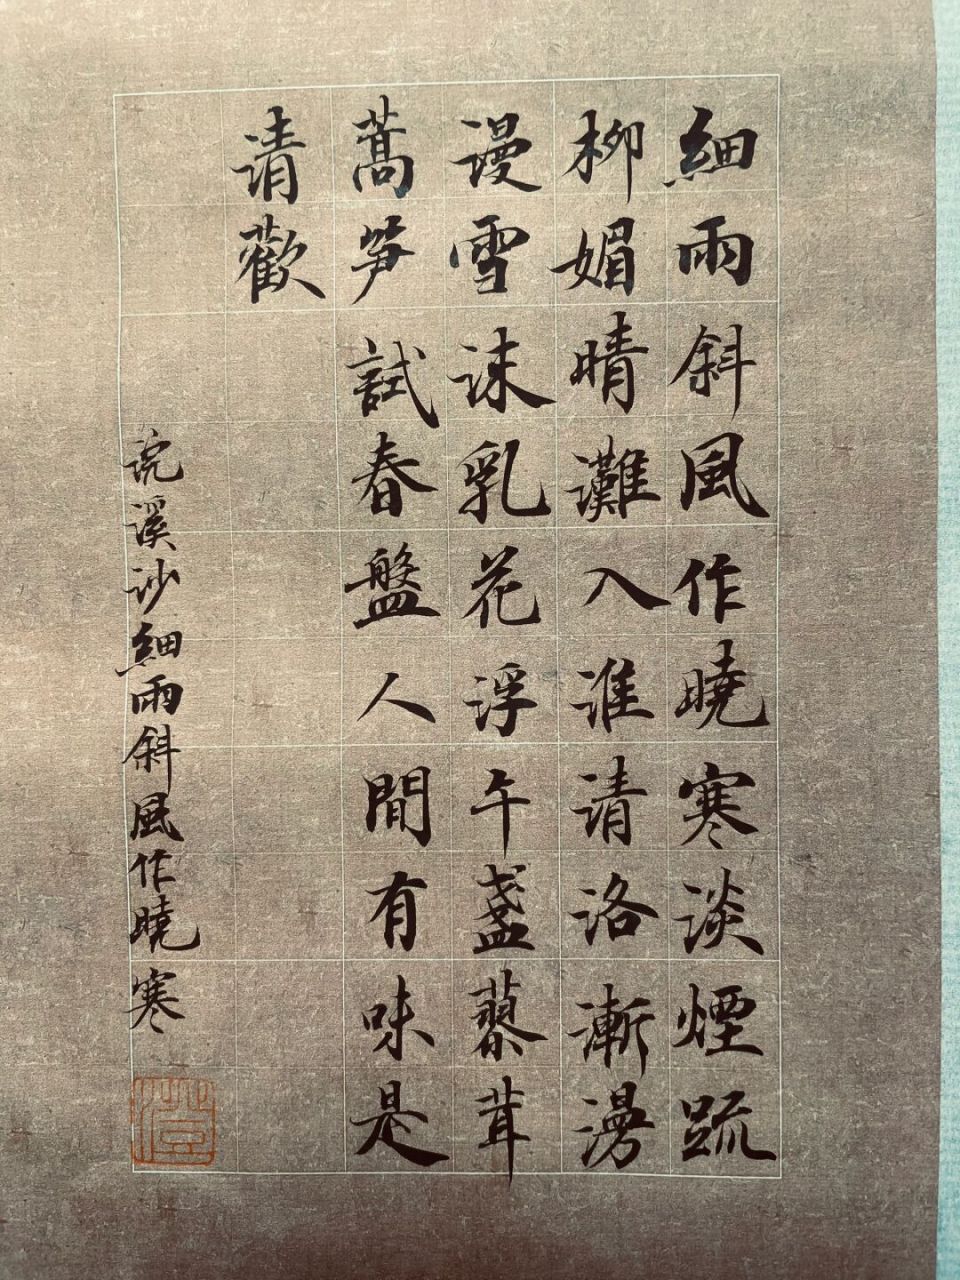 細雨斜風作曉寒淡煙疏
柳媚晴灘入淮清洛漸漫
漫雪沫乳花浮午盞蓼茸
蒿笋試春盤人間有味是
清歡
浣溪沙細雨斜風作曉寒
澄